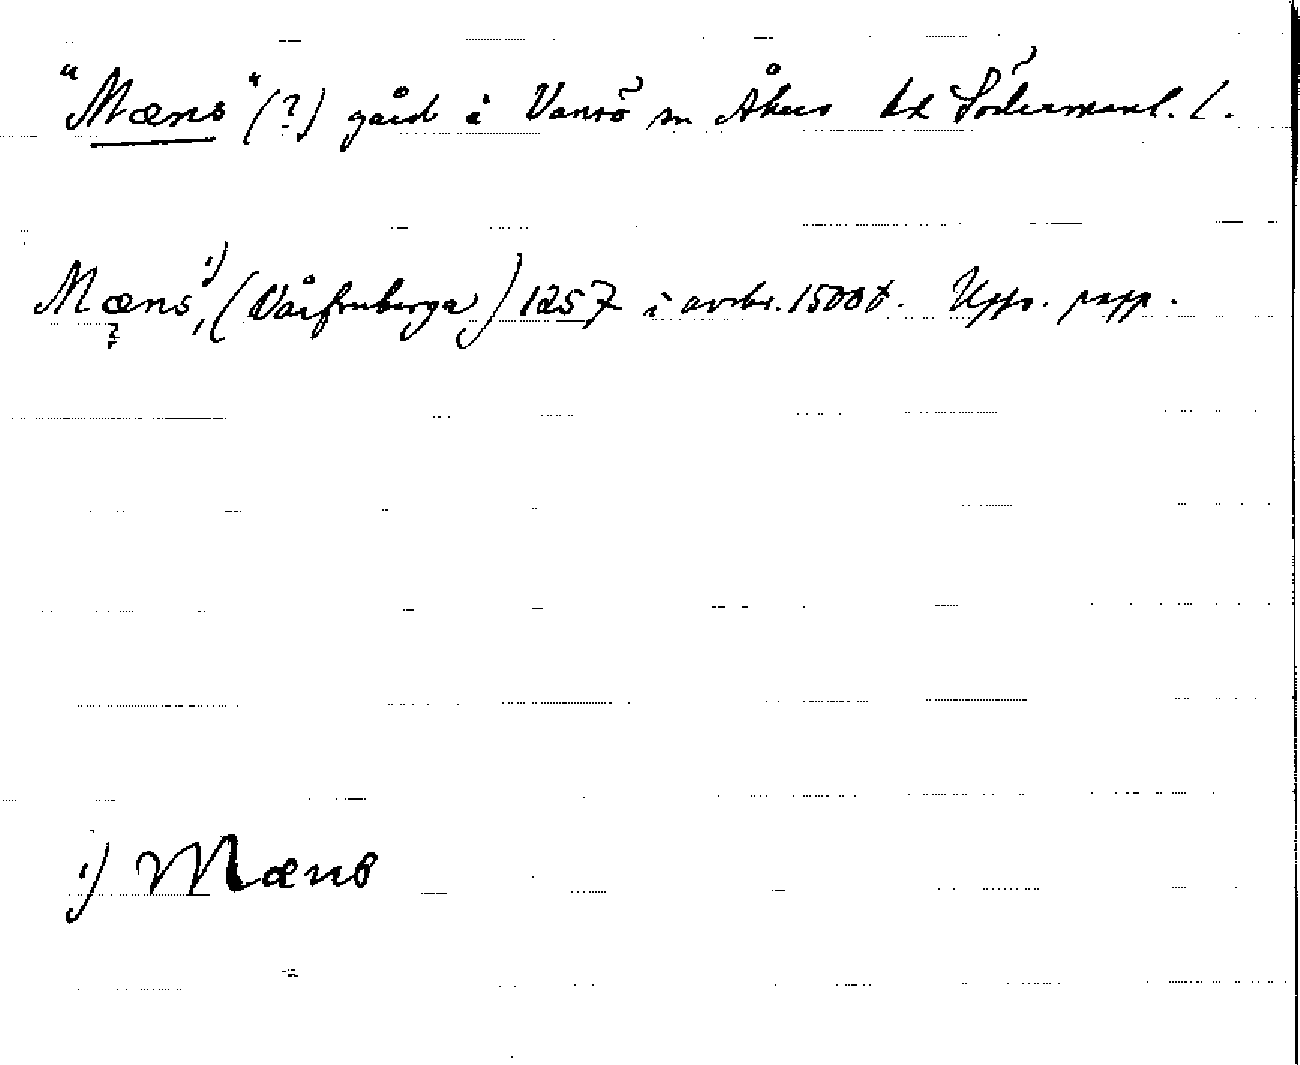 "Mæns" (?) gård i Vansö sn Åkers hd Södermanl. l.
Mæns, ¹) (Vårfruberga) 1257 i avskr. 1500 t. Upps. papp.
?
¹) Mæns